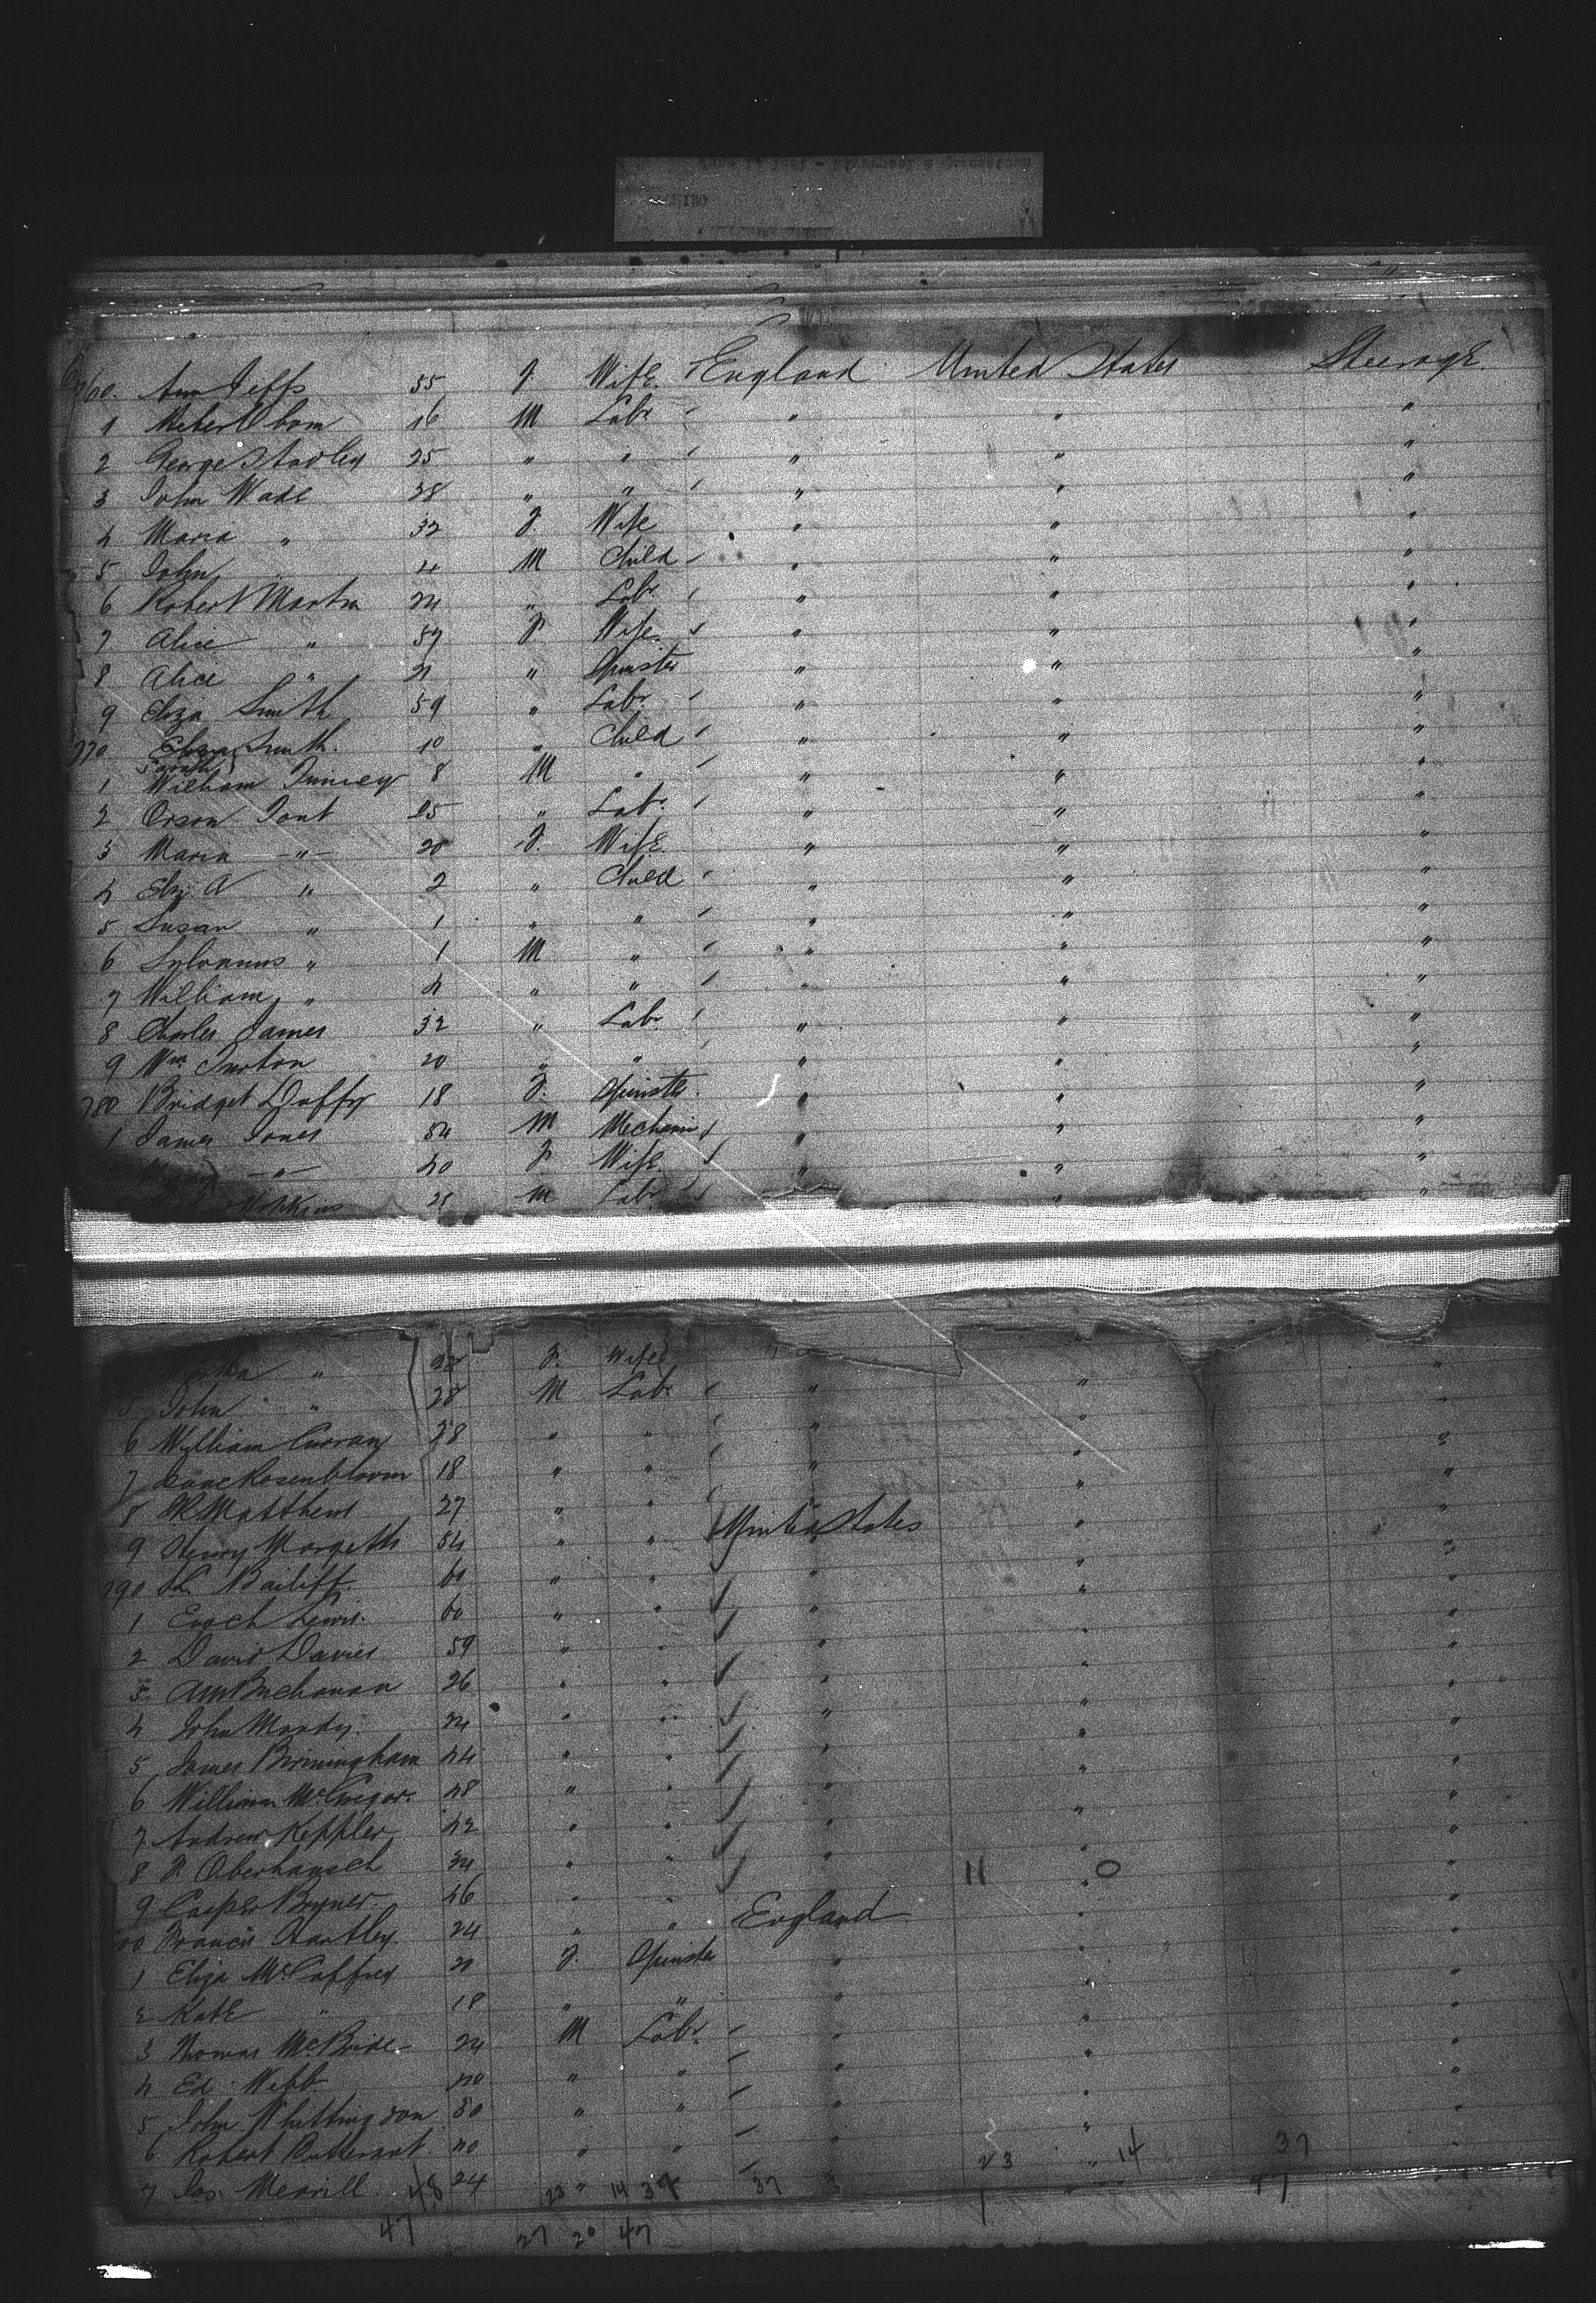 760. Ann Jeffs 55 F. Wife England United States Steerage
1 Heber Oborn 16 M Labr " " "
2 George Stadley 25 " " " " "
3 John Wade 38 " " " " "
4 Maria " 32 F. Wife " " "
5 John " 4 M Child " " "
6 Robert Martin 24 " Labr " " "
7 Alice " 57 F Wife. " " "
8 Alice " 21 " Spinster " " "
9 Eliza Smith 59 " Labr " " "
770 Smith. 10 " Child " " "
Sarah
1 William 8 M " " " "
2 Orson 25 " Labr. " " "
3 Maria " 20 F. Wife. " " "
4 Eliz. A " 2 " Child " " "
5 Susan " 1 " " " " "
6 Sylvanus " 1 M " " " "
7 William " 4 " " " " "
8 Charles James 32 " Labr " " "
9 Wm. 20 " " " " "
780 Bridget Duffy 18 F. Spinster. " " "
1 James Jones 54 M Mechanic " " "
" 40 F. Wife. " " "
Hopkins 28 M Labr " "
Martha " F. Wife " "
5 John " 28 M Labr " " "
6 William Curran 28 " " " " "
7 Isaac Rosenbloom 18 " " " " "
8 Matthews 27 " " " "
9 Henry Margetts 54 " " United States " "
790 Bailiff. 60 " " " " "
1 Enoch Lewis. 60 " " " " "
2 David Davies 59 " " " " "
3 Buchanan 26 " " " "
4 John Moody. 24 " " " " "
5 James Birmingham 44 " " " " "
6 William McGregor. 48 " " " " "
7 Andrew Keppler 42 " " " " "
8 34 " " " " "
9 Casper Bryner. 46 " " "
00 Francis Hartley 24 " " England " "
1 Eliza McCaffrey 21 F. Spinster " " "
2 Kate " 18 " " " " "
3 Thomas McBride 24 M Labr. " " "
4 Ed. Webb. 40 " " " " "
5 John Whittingdon 50 " " " "
6 Robert 40 " " " " "
7 Jas. Merrill. 48 24 23 " 14 37 37 23 " 14 37
47 27 20 47 1 47